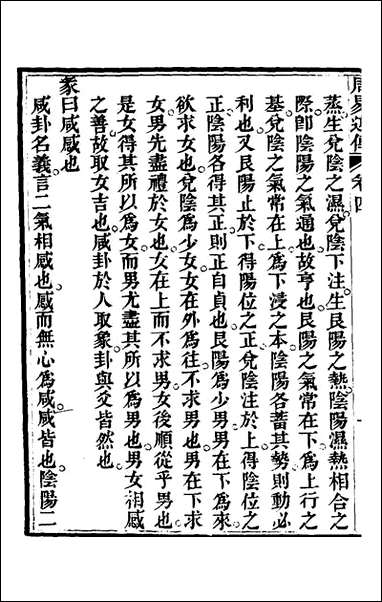 周易述傳 卷四
蒸生兌陰之濕兌陰下注生艮陽之熱陰陽濕熱相合之
際卽陰陽之氣通也故亨也艮陽之氣常在下爲上行之
基兌陰之氣常在上爲下浸之本陰陽各蓄其勢則動必
利也又艮陽止於下得陽位之正兌陰注於上得陰位之
正陰陽各得其正則正自貞也艮陽爲少男男在下爲來
欲求女也兌陰爲少女女在外爲往不求男也男在下求
女男先盡禮於女也女在上而不求男女後順從乎男也
是女得其所以爲女而男尤盡其所以爲男也男女相感
之善故取女吉也咸卦於人取象卦與爻皆然也
彖曰咸感也
咸卦名義言二氣相感也感而無心爲咸咸皆也陰陽二